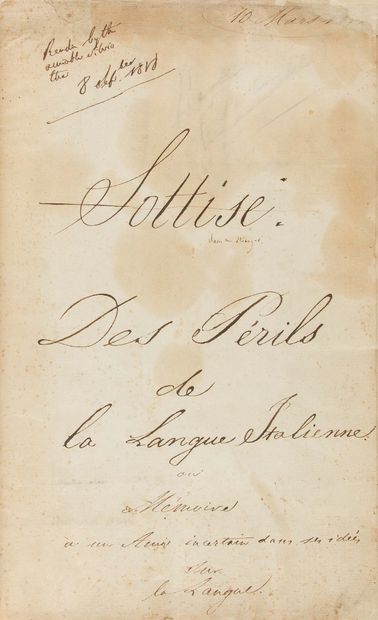 10 Mars
Rendu by the
amiable Silvio
the 8 Sept.ber 1818
Sottise.
Des Périls
de
la Langue Italienne.
ou
Mémoire
à un Ami incertain dans ses idées
sur
la Langue.